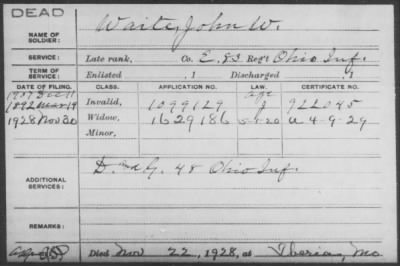 DEAD
NAME OF SOLDIER: Waite, John W.
SERVICE: Late rank, Co. E, 83 Reg't Ohio Inf.
TERM OF SERVICE: Enlisted , 1 Discharged , 1
DATE OF FILING. CLASS. APPLICATION NO. LAW. CERTIFICATE NO.
Age
Invalid, 1099129 J 922045
1928 Nov 30 Widow, 1629186 5-1-20 a 4-9-29
Minor,
ADDITIONAL SERVICES: D. & G. 48 Ohio Inf.
REMARKS:
Died Nov 22, 1928, at Iberia, Mo